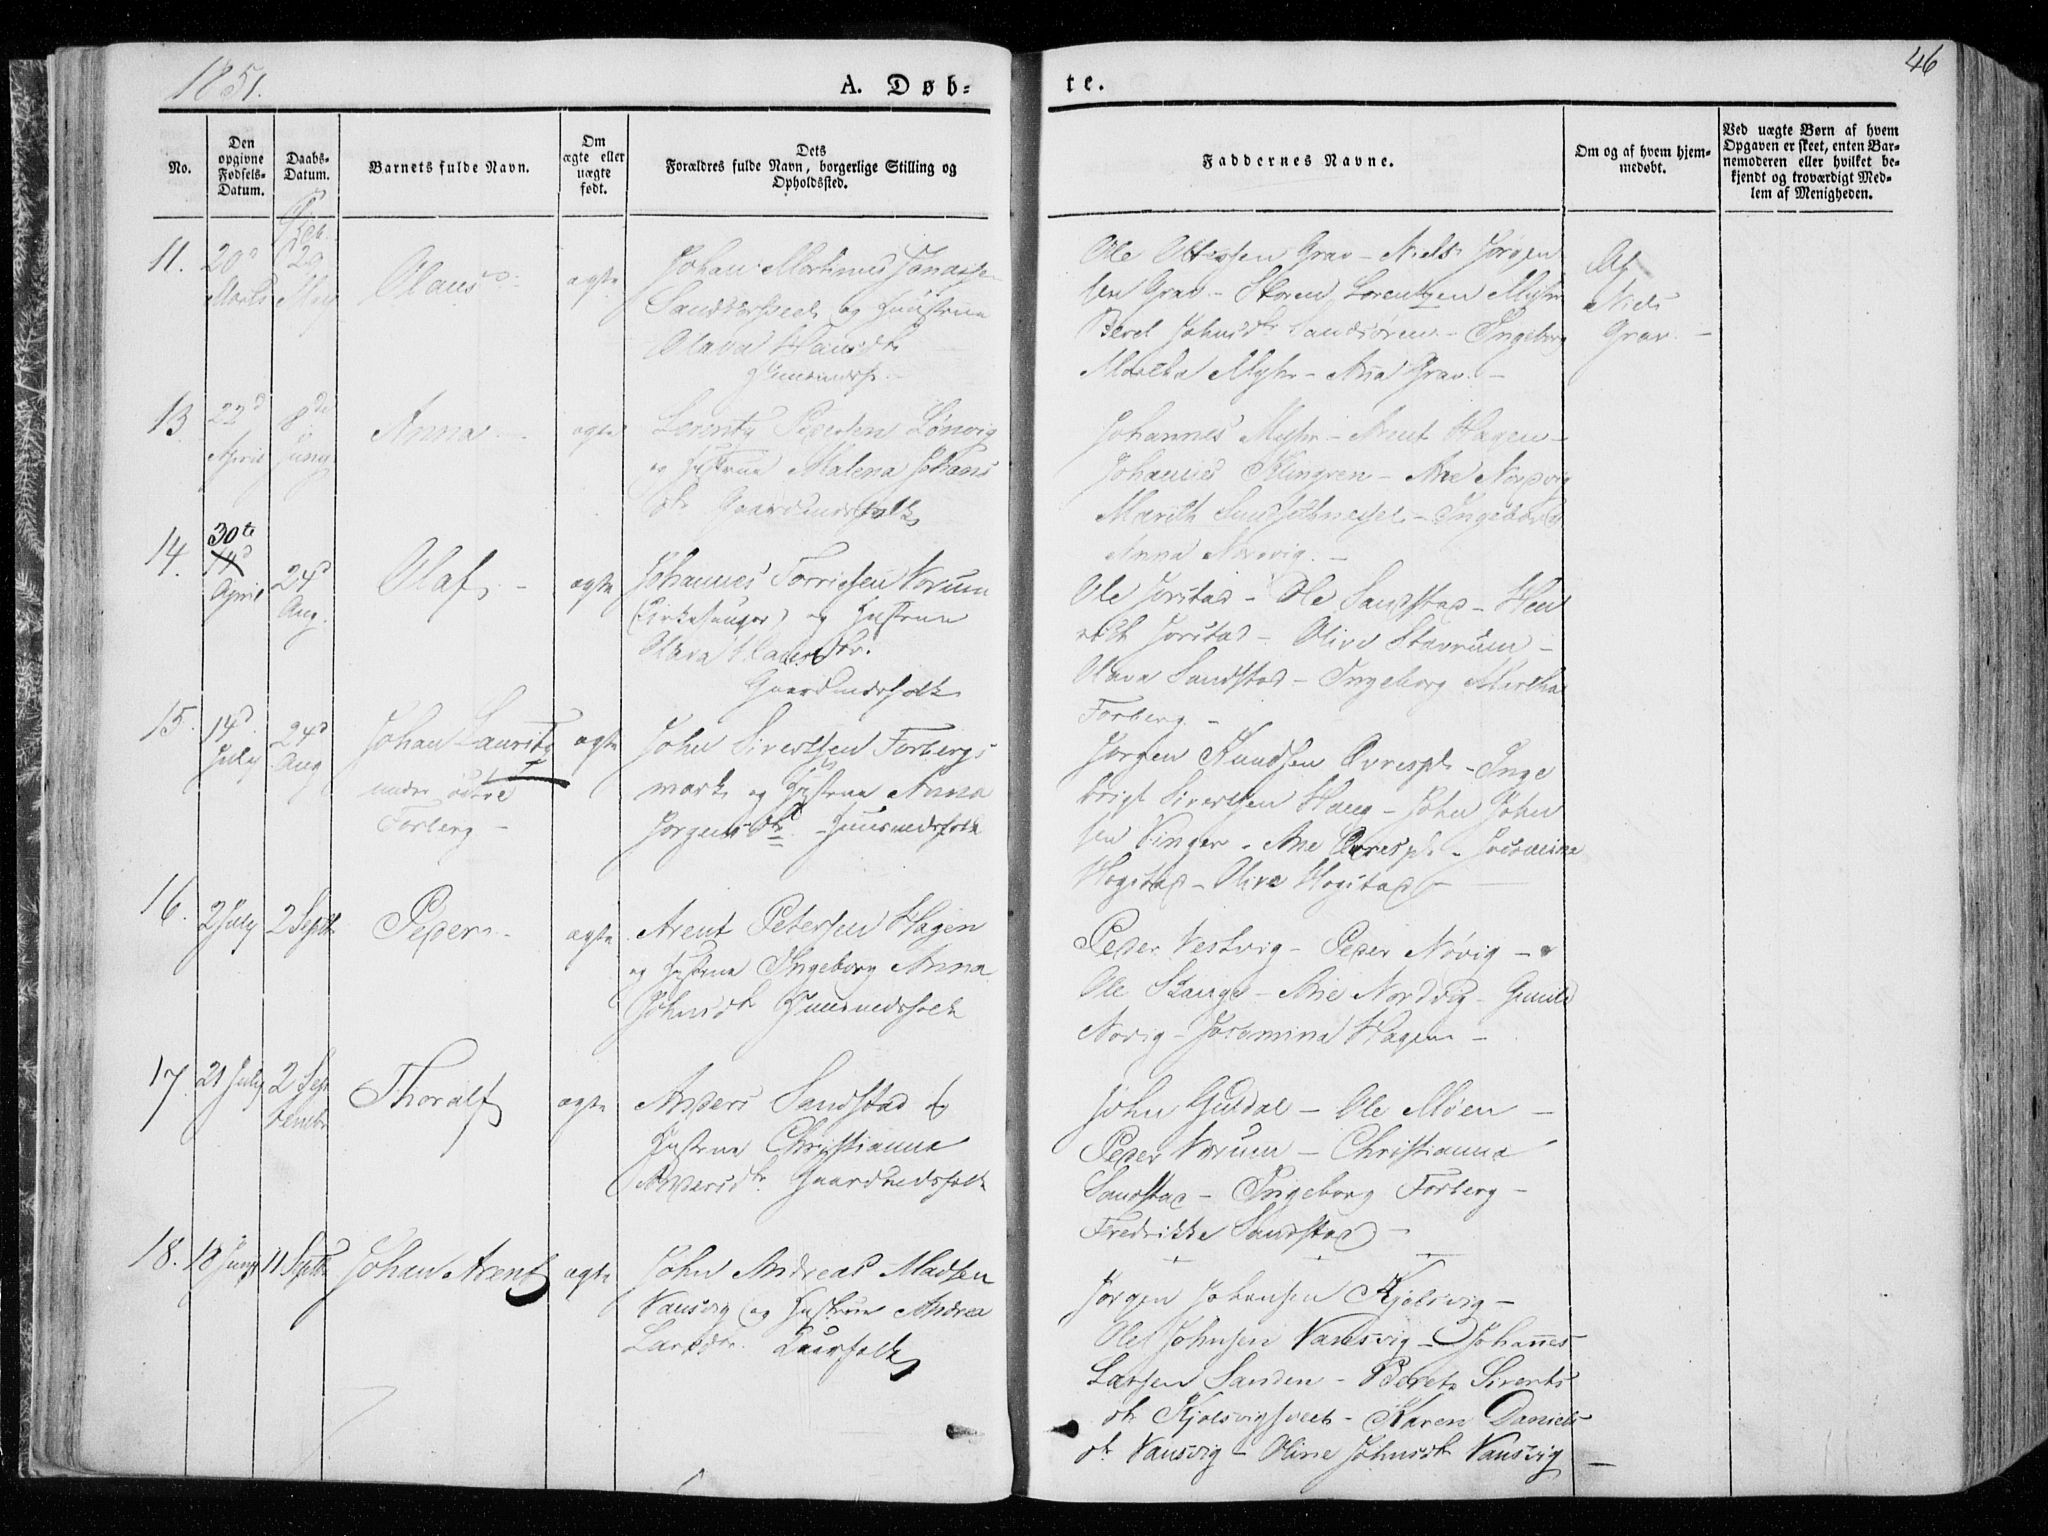 1851.
A. Døb-
te.
46
No.
Den
opgivne
Fødsels-
Datum.
Daabs-
Datum.
Barnets fulde Navn.
Om
ægte eller
uægte
født.
Dets
Forældres fulde Navn, borgerlige Stilling og
Opholdssted.
Faddernes Navne.
Om og af hvem hjem-
medøbt.
Ved uægte Børn af hvem
Opgaven er skeet, enten Bar-
nemoderen eller hvilket be-
kjendt og troværdigt Med-
lem af Menigheden.
11.
20d
Marts
29
May
Olaus
ægte
Johan Mortinus
og Hustrue
Olava Hansdtr
Huusmandsf.
Ole Ottesen Grav - Niels Jørgen
sen Grav - Lorentzen Myhr
Beret Johnsdtr - Ingeborg
Martha Myhr - Ana Grav -
Af
Niels
Grav. -
13
22d
April
8de
Juny
Anna -
ægte
Lorentz Pedersen Lønvig
og Hustrue Malena Johans
dtr Gaardmandsfolk
Johannes Myhr - Arent Hagen -
Johannes Klingren - Ane Nordvig
Marith - Ingeborg
Anna Nordvig. -
14.
30te
14d
April
24d
Aug.
Olaf -
ægte
Johannes Torrissen Vorum
(Kirkesanger) og Hustrue
Olava Hansdtr.
Gaardmandsfolk
Ole Jørstad - Ole Sandstad - Hen
rich Jørstad - Olive Stavrum -
Olava Sandstad - Ingeborg Martha
Forberg -
15.
14d.
July
24d
Aug
Johan Lauritz
under østre
Forberg -
ægte
John Sivertsen Forbergs
mark og Hustrue Anna
Jørgensdtr. Huusmandsfolk
Jørgen Knudsen Øvrespl. - Inge
brigt Sivertsen Haug - John John
sen Vinger - Ane Øvrespl. -
Hegstad - Olive Hegstad -
16.
2 July
2 Septbr
Peder -
ægte
Arent Petersen Hagen
og Hustrue Ingeborg Anna
Johnsdtr Huusmandsfolk
Peder Vestvig - Peder Nøvig -
Ole Stange - Ane Nordvig - Gunild
Novig - Hagen -
17.
21 July
2 Sep
tember
Thoralf
ægte
Anders Sandstad og
Hustrue Christianna
Andersdtr. Gaardmandsfolk
John Guldal - Ole Møen -
Peder Vorum - Christianna
Sandstad - Ingeborg Forberg -
Fredrikke Sandstad -
18.
18 Juny
11 Septbr
Johan Arent
ægte
John Andreas Madsen
Vansvig og Hustrue Andrea
Larsdtr.
Jørgen Johansen Kjølsvig -
Ole Johnsen Vansvig - Johannes
Larsen Sanden - Beret Siverts
dtr Kjølsvighvelt - Karen Daniels
dtr Vansvig - Oline Johnsdtr Vansvig -